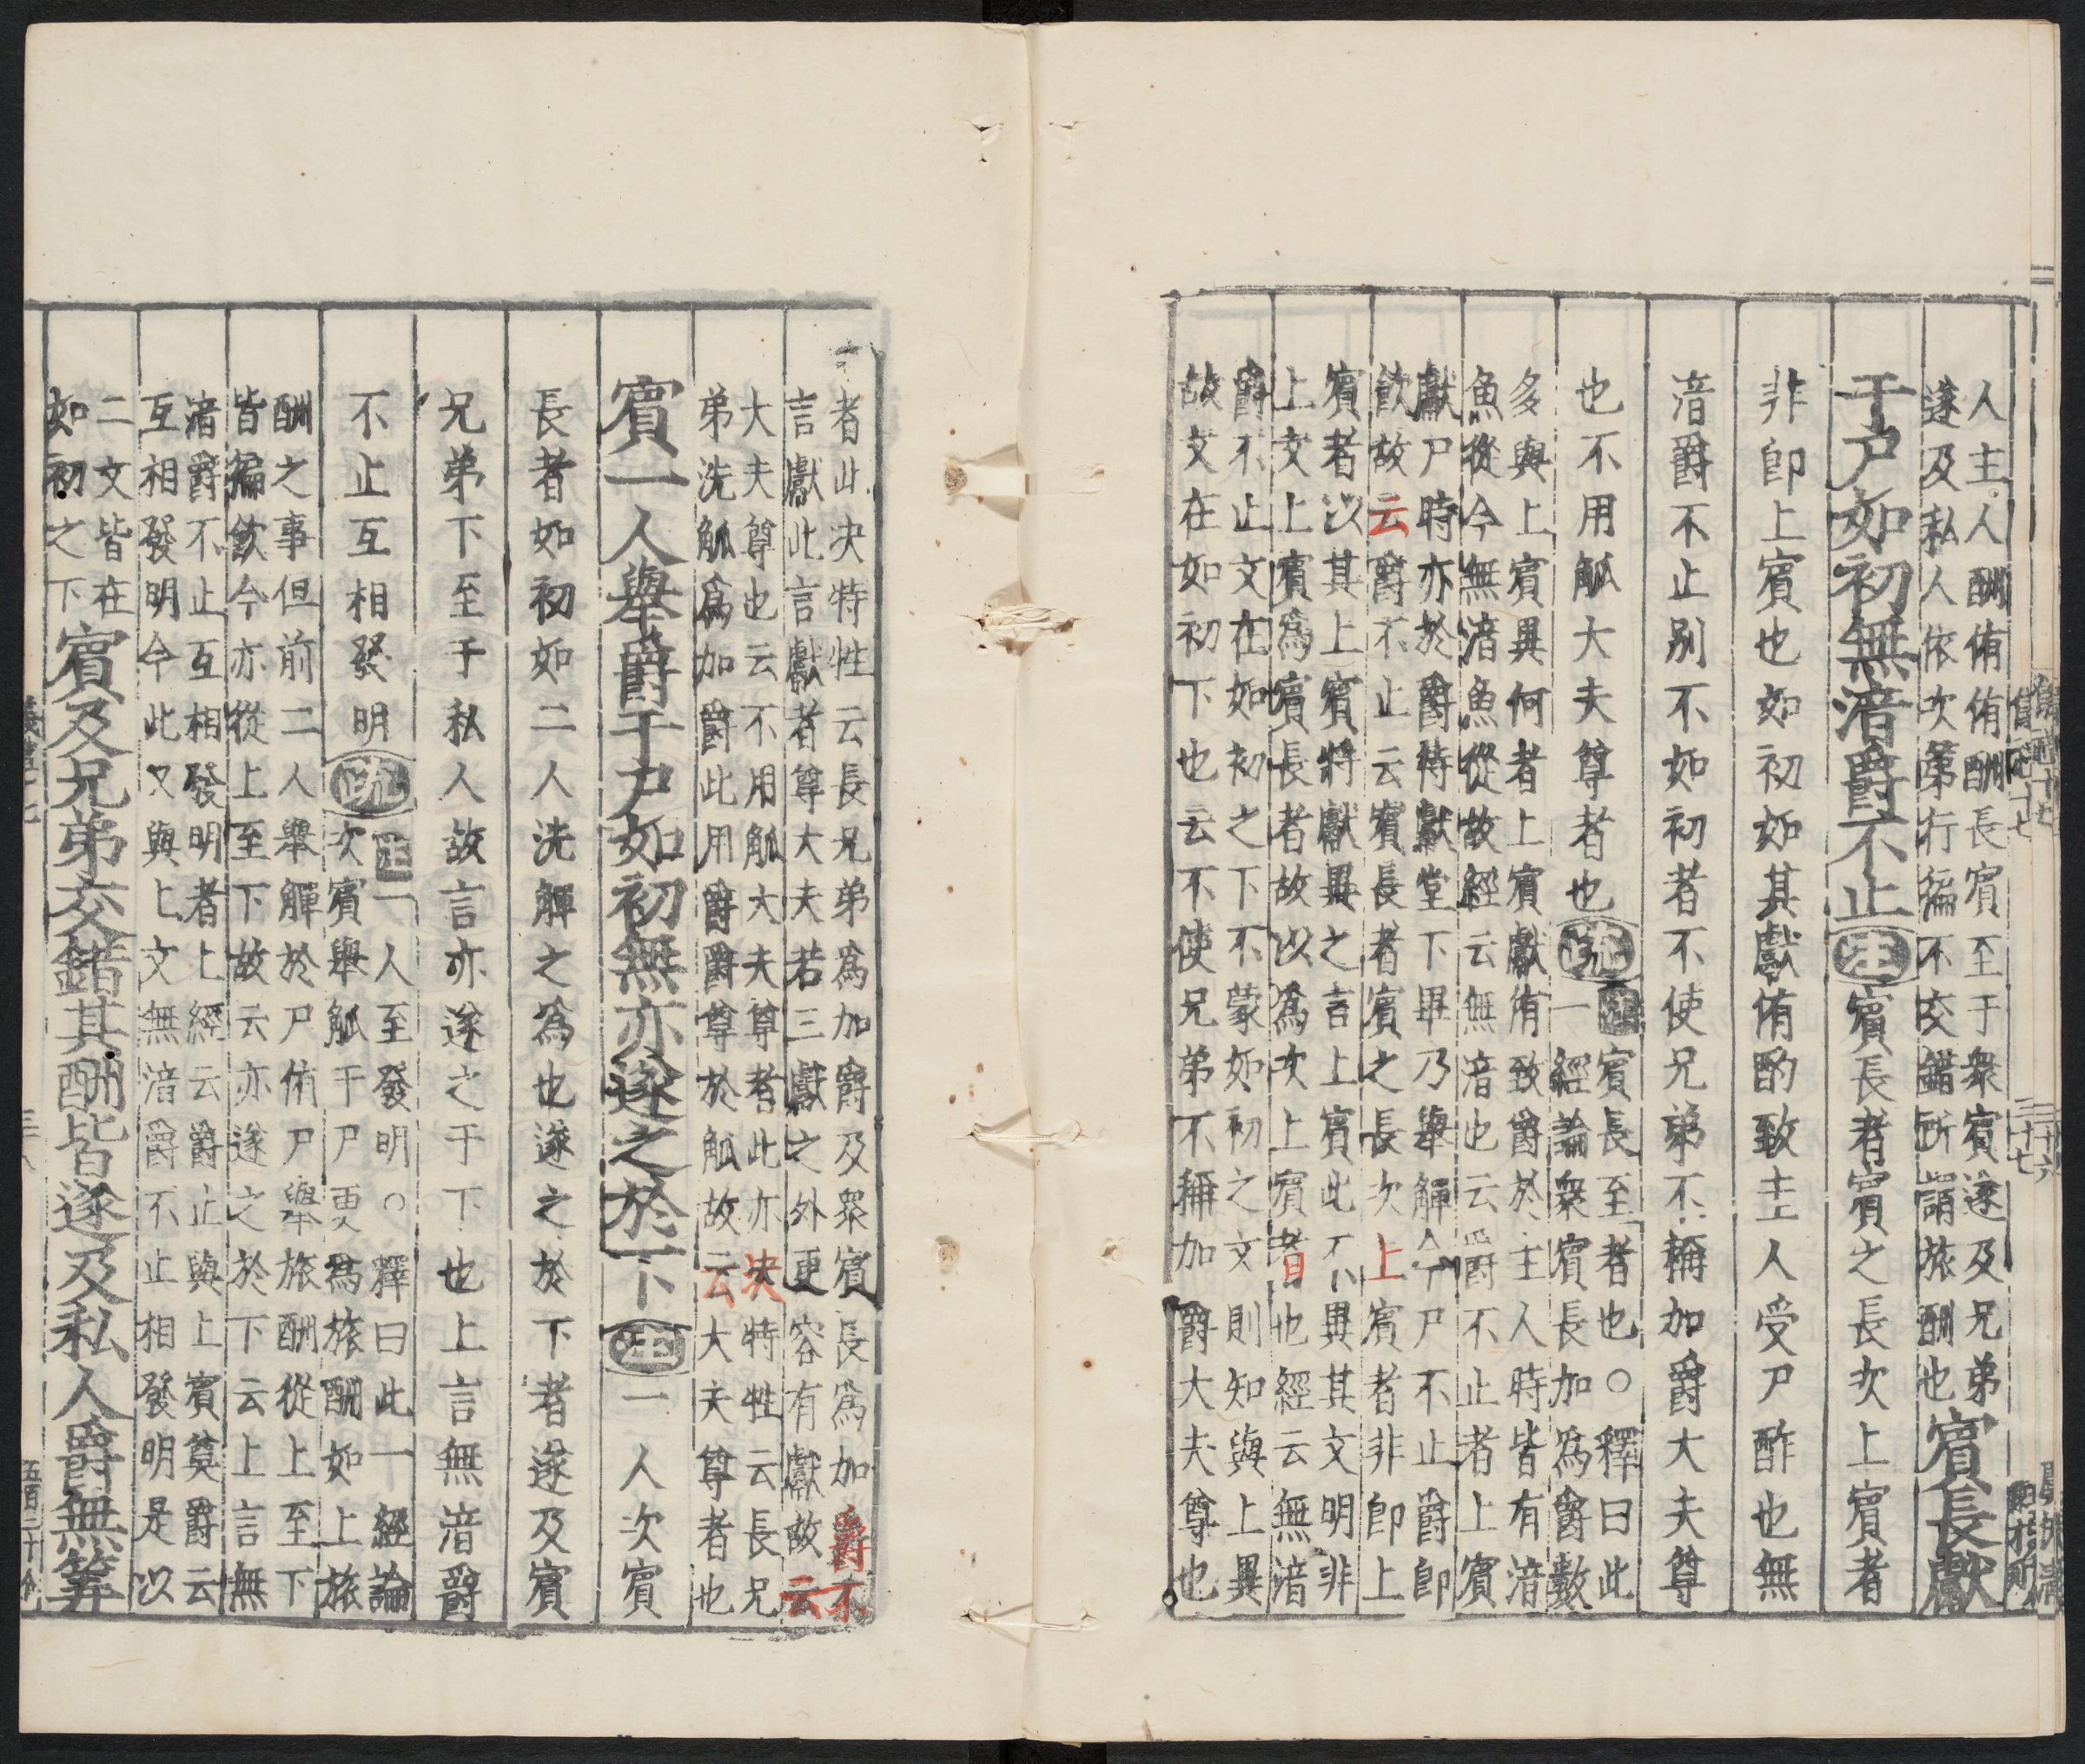 人主人酬侑侑酬長賓至于衆賓遂及兄弟
遂及私人依次第行徧不交錯所謂旅酬也
賓長獻
于尸如初無湆爵不止注賓長者賓之長次上賓者
非卽上賓也如初如其獻侑酌致主人受尸酢也無
湆爵不止別不如初者不使兄弟不稱加爵大夫尊
也不用觚大夫尊者也疏
賓長至者也○釋曰此
一經論衆賓長加爲爵數
多與上賓異何者上賓獻侑致爵於主人時皆有湆
魚從今無湆魚從故經云無湆也云爵不止者上賓
獻尸時亦於爵待獻堂下畢乃舉觶今尸不止爵卽
飲故云爵不止云賓長者賓之長次上賓者非卽上
賓者以其上賓將獻異之言上賓此不異其文明非
上交上賓爲賓長者故以爲次上賓者也經云無湆
爵不止文在如初之下不蒙如初之文則知與上異
故文在如初下也云不使兄弟不稱加爵大夫尊也
者此决特牲云長兄弟爲加爵及衆賓長爲加爵不
言獻此言獻者尊大夫若三獻之外更容有獻故云
大夫尊也云不用觚大夫尊者此亦决特牲云長兄
弟洗觚爲加爵此用爵爵尊於觚故云大夫尊者也
賓一人舉爵于尸如初無亦遂之於下注一人次賓
長者如初如二人洗觶之爲也遂之於下者遂及賓
兄弟下至于私人故言亦遂之于下也上言無湆爵
不止互相發明疏
注一人至發明○釋曰此一經論
次賓舉觚于尸更爲旅酬如上旅
酬之事但前二人舉觶於尸侑尸舉旅酬從上至下
皆徧飲今亦從上至下故云亦遂之於下云上言無
湆爵不止互相發明者上經云爵止與上賓奠爵云
互相發明今此又與上文無湆爵不止相發明是以
二文皆在
如初之下
賓及兄弟交錯其酬皆遂及私人爵無筭